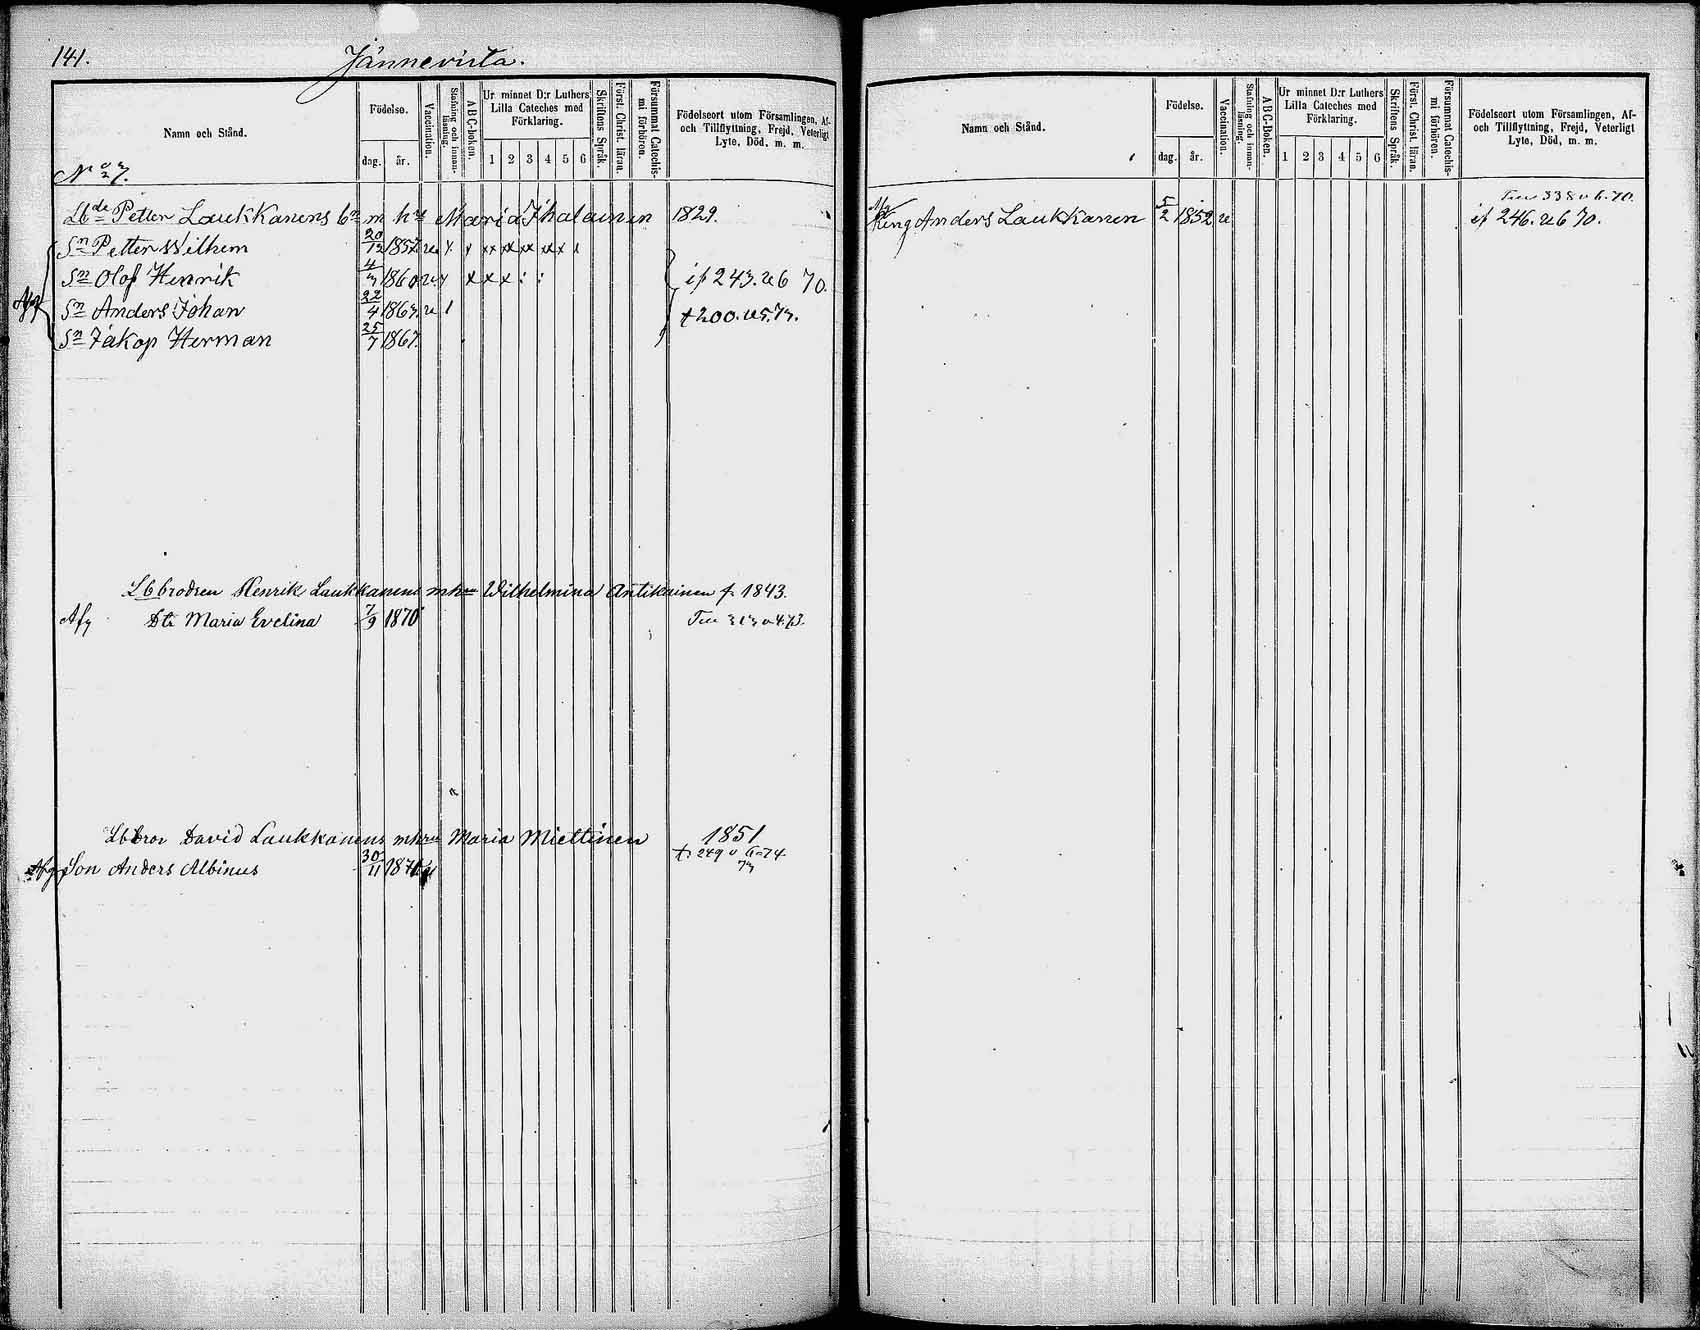 141.
Jännevirta.
Namn och Stånd.
Födelse.
dag. år.
Vaccination.
Stafning och innanläsning.
ABC-boken.
Ur minnet D:r Luthers
Lilla Cateches med
Förklaring.
1 2 3 4 5 6
Skriftens Språk.
Först. Christ. läran.
Försummat Catechismi förhören.
Födelseort utom Församlingen, Af-
och Tillflyttning, Frejd, Veterligt
Lyte, Död, m. m.
No 7.
Lbde Petter Laukkanens bn m hu Maria Ihalainen 1829.
Sn Petter Wilhem 20/12 1857
Sn Olof Henrik 4/3 1860 if 243. 70.
Sn Anders Johan 22/4 1863 200.
Sn Jakop Herman 25/7 1867
Lbbrodsen Henrik Laukkanens mhu Wilhelmina Antikainen f. 1843.
Afg Dtr Maria Evelina 7/9 1870
Lbbror David Laukkanens mhru Maria Miettinen 1851
Afg Son Anders Albinus 30/11 1871 249 74
Namn och Stånd.
Födelse.
dag. år.
Vaccination.
Stafning och innanläsning.
ABC-Boken.
Ur minnet D:r Luthers
Lilla Cateches med
Förklaring.
1 2 3 4 5 6
Skriftens Språk.
Först. Christ. läran.
Försummat Catechismi förhören.
Födelseort utom Församlingen, Af-
och Tillflyttning, Frejd, Veterligt
Lyte, Död, m. m.
338 70.
Anders Laukkanen 5/2 1852 if 246. 70.